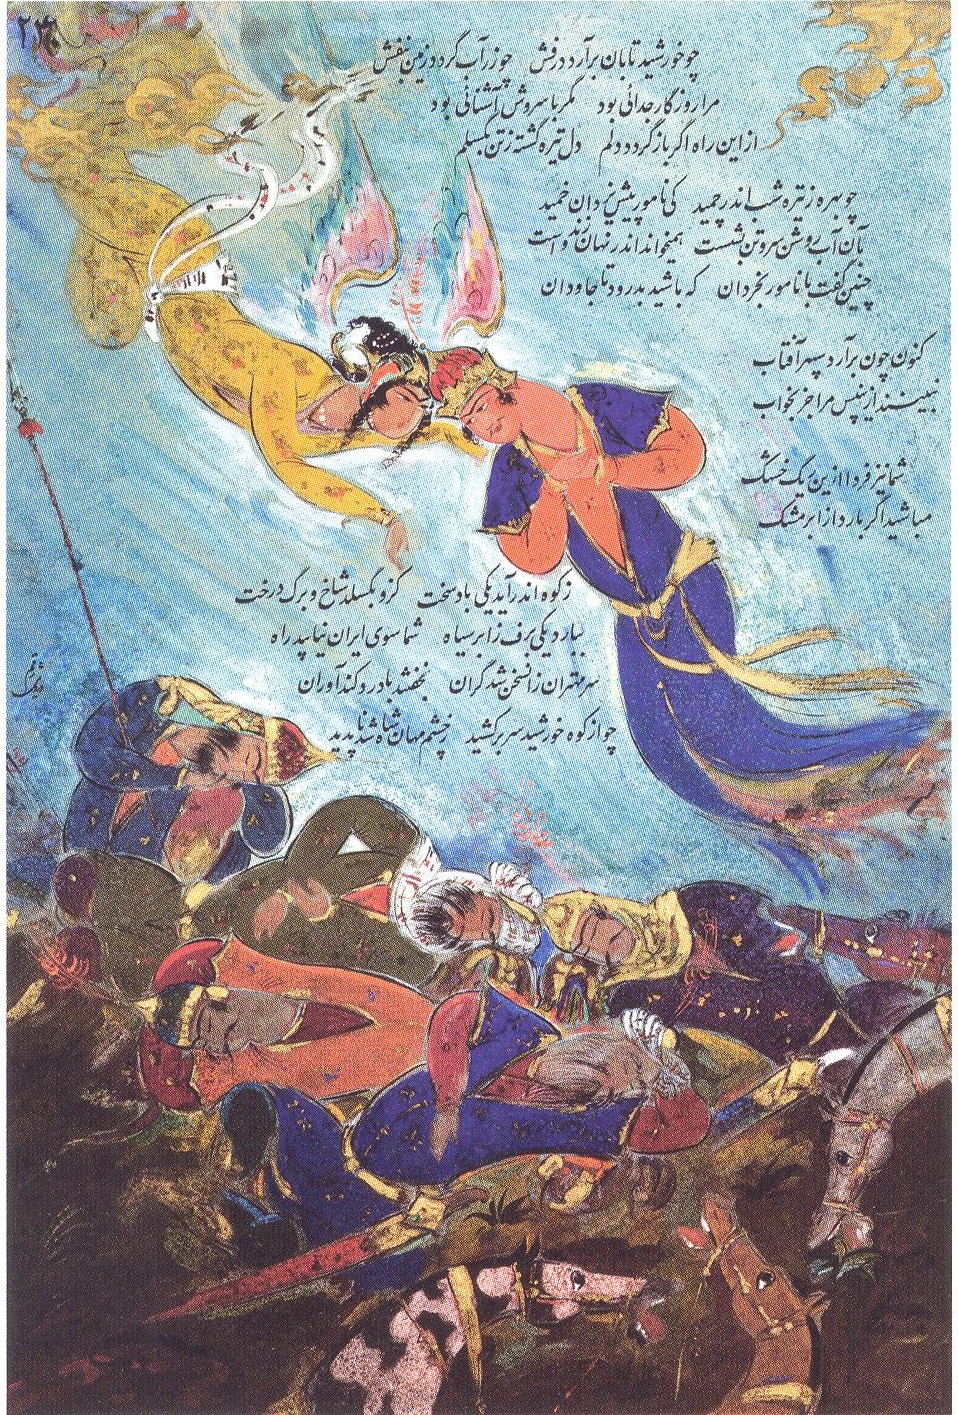 چو خورشید تابان برآرد درفش چو زر آب گردد زمین بنفش
مرا روزگار جدائی بود مگر با سروش آشنائی بود
از این راه اگر باز گردد دلم دل تیره گشته ز تن بگسلم
چو بهره ز تیره شب اندر چمید کی نامور پیش یزدان خمید
بآن آب روشن سر و تن بشست همیخواند اندر نهان زند و است
چنین گفت با نامور بخردان که باشید بدرود تا جاودان
کنون چون برآرد سپهر آفتاب
نبینند ازین پس مرا جز بخواب
شما نیز فردا ازین ریگ خشک
مباشید اگر بارد از ابر مشک
ز کوه اندر آید یکی باد سخت کزو بگسلد شاخ و برگ درخت
ببارد یکی برف ز ابر سیاه شما سوی ایران نیابید راه
سر مهتران زان سخن شد گران بخفتند با درد کندآوران
چو از کوه خورشید سر برکشید ز چشم مهان شاه شد ناپدید